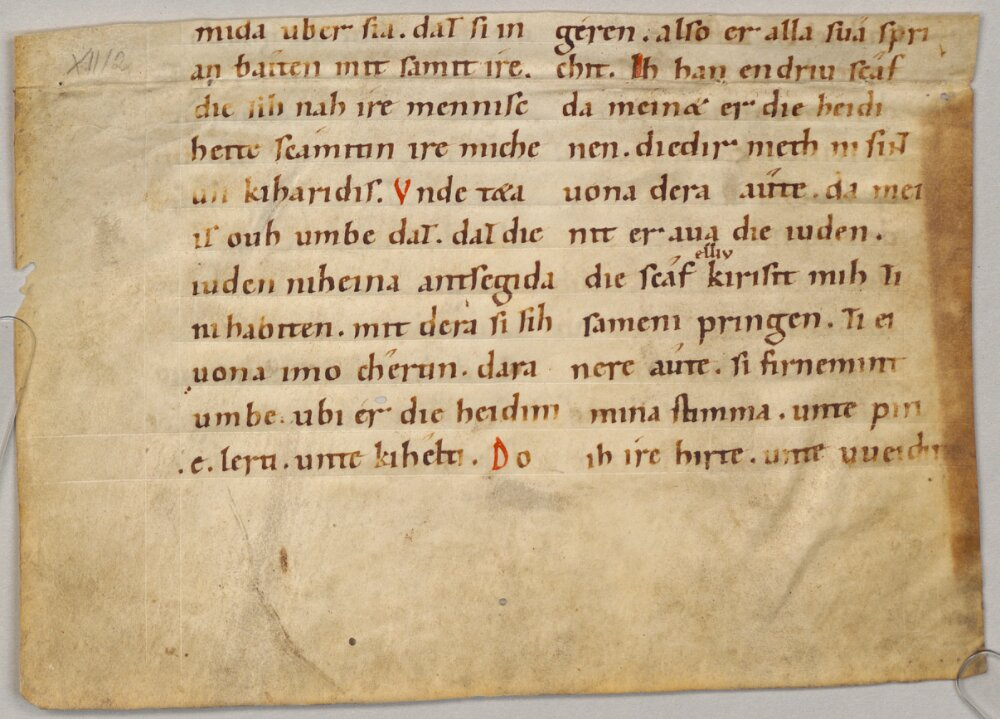 XII/2
mida uber sia. daz si in
an bâiten mit samit ire.
die sih nah ire mennisc
heite scâmitin ire miche
kiharidis. Vnde tæta
iz ouh umbe daz. daz die
iuden niheina antsegida
nihabiten. mit dera si sih
vona imo chêrtin. dara
umbe. ubi êr die heidini
.e. lerti. unte kihêlti. Do
geren. also er alla suâ spri
chit. Ih han endriu scâf
da meinæ er die heidi
nen. diedir nieth in siz
vona dera aûite. da mei
nit er ava die iuden.
elliv
die scâf kiristit mih zi
sameni pringen. zi ei
nere aûite. si firnemint
mina stimma. unte pin
ih ire hirte. unte